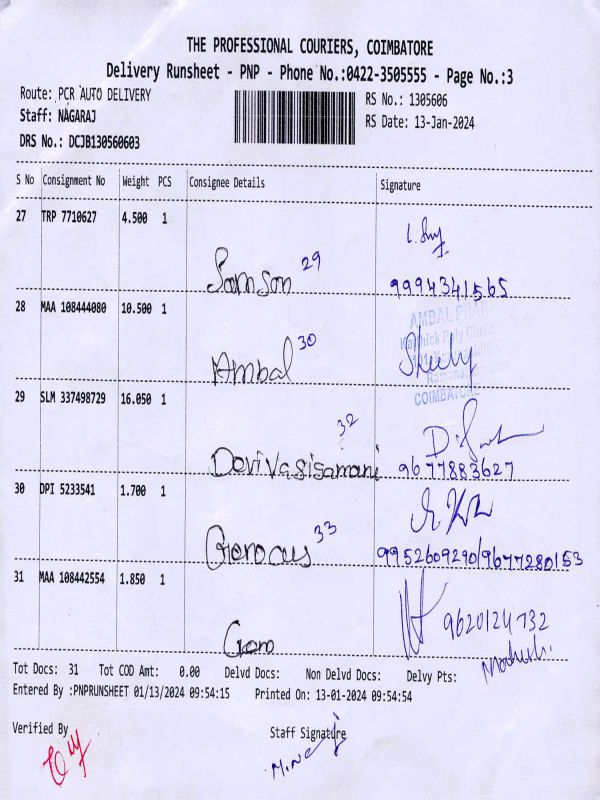 THE PROFESSIONAL COURIERS, COIMBATORE
Delivery Runsheet - PNP - Phone No.:0422-3505555 - Page No.:3
Route: PCR AUTO DELIVERY
RS No.: 1305606
Staff: NAGARAJ
RS Date: 13-Jan-2024
DRS No.: DCJB130560603
S No Consignment No Weight PCS Consignee Details Signature
27 TRP 7710627 4.500 1
Samson 29 9994341565
28 MAA 108444080 10.500 1
AMBAL
Ambal 30
COIMBATORE
29 SLM 337498729 16.050 1
32
Devivasigamani 9677883627
30 DPI 5233541 1.700 1
33
9952609290/9677280153
31 MAA 108442554 1.850 1
9620124732
Gem
Tot Docs: 31 Tot COD Amt: 0.00 Delvd Docs: Non Delvd Docs: Delvy Pts:
Entered By :PNPRUNSHEET 01/13/2024 09:54:15 Printed On: 13-01-2024 09:54:54
Verified By Staff Signature